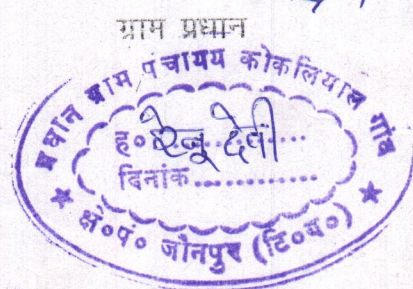 ग्राम प्रधान
प्रधान ग्राम पंचायय कोकलियाल गांव
ह० रेनू देवी
दिनांक............
★ क्षे०पं० जौनपुर (टि०ग०) ★